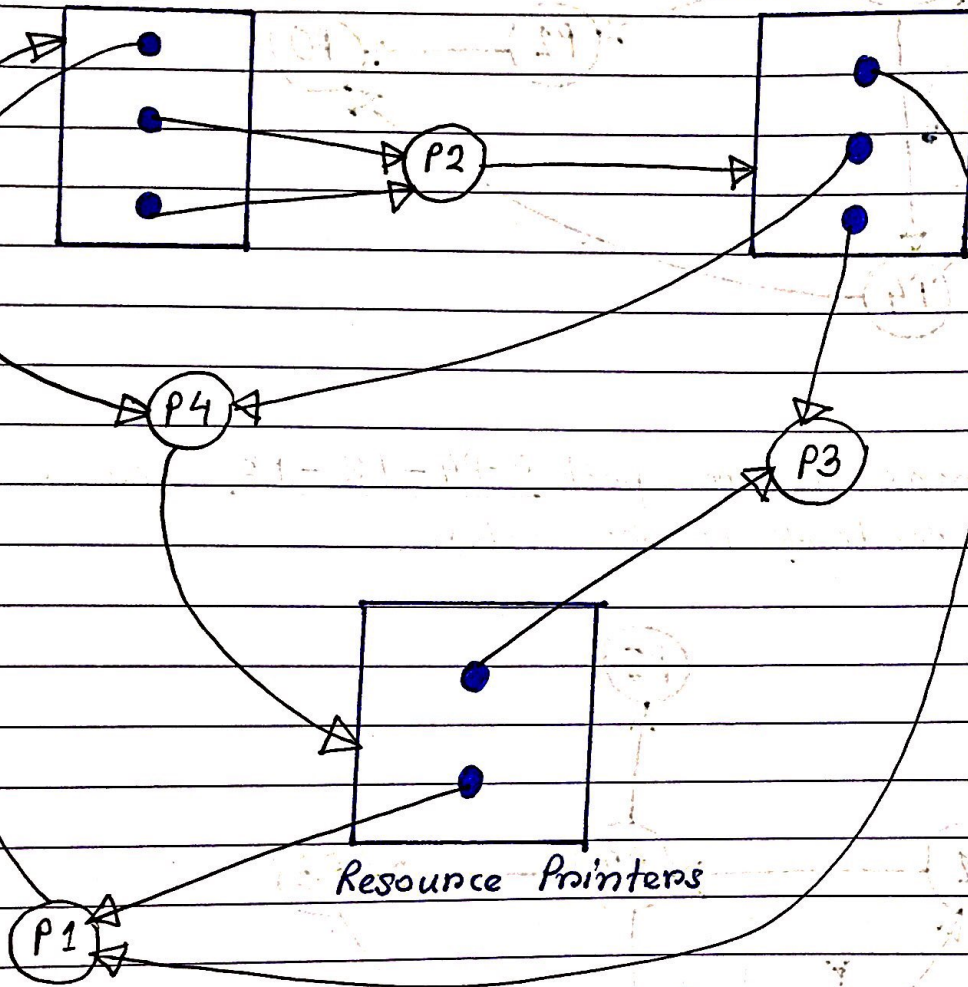 P2
P4
P3
Resource Printers
P1